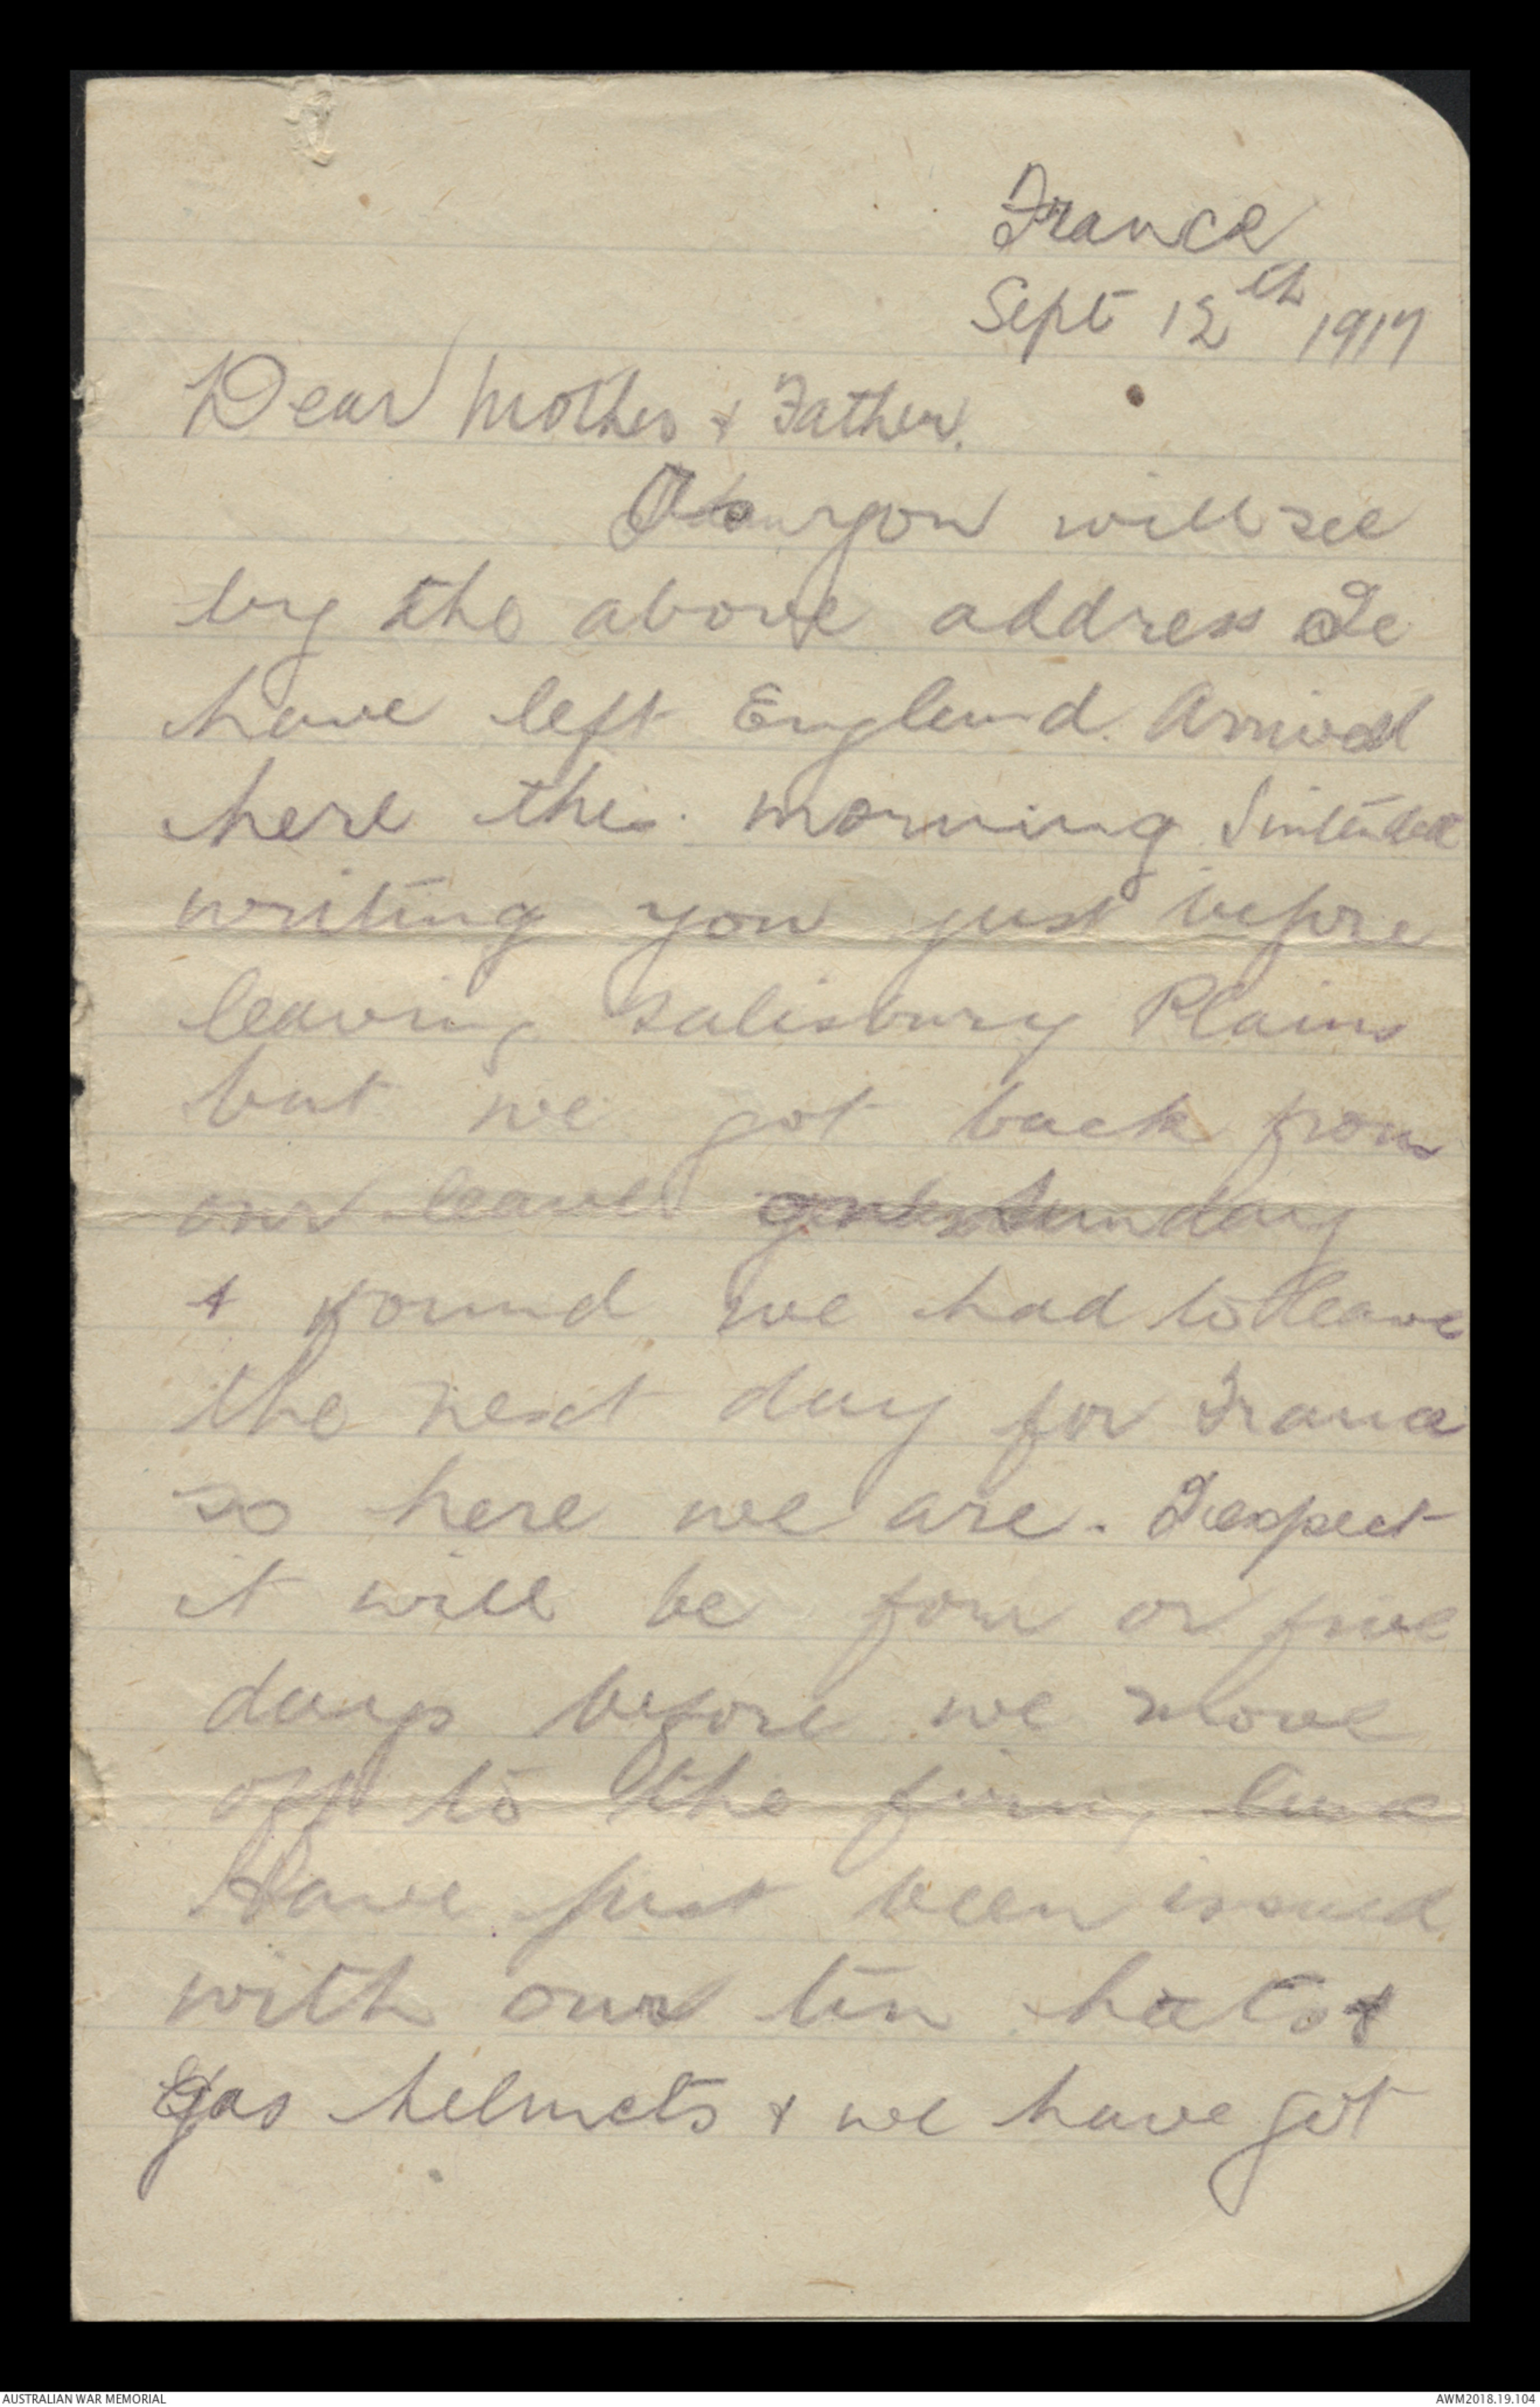 France
Sept 12th 1917
Dear Mother & Father.
As you will see
by the above address I
have left England. Arrived
here this morning I intended
writing you just before
leaving Salisbury Plains
but we got back from
our leave Sunday
& found we had to leave
the next day for France
so here we are. I expect
it will be four or five
days before we move
off to the firing line
Have just been issued
with our tin hats &
gas helmets & we have got
AUSTRALIAN WAR MEMORIAL
AWM2018.19.104